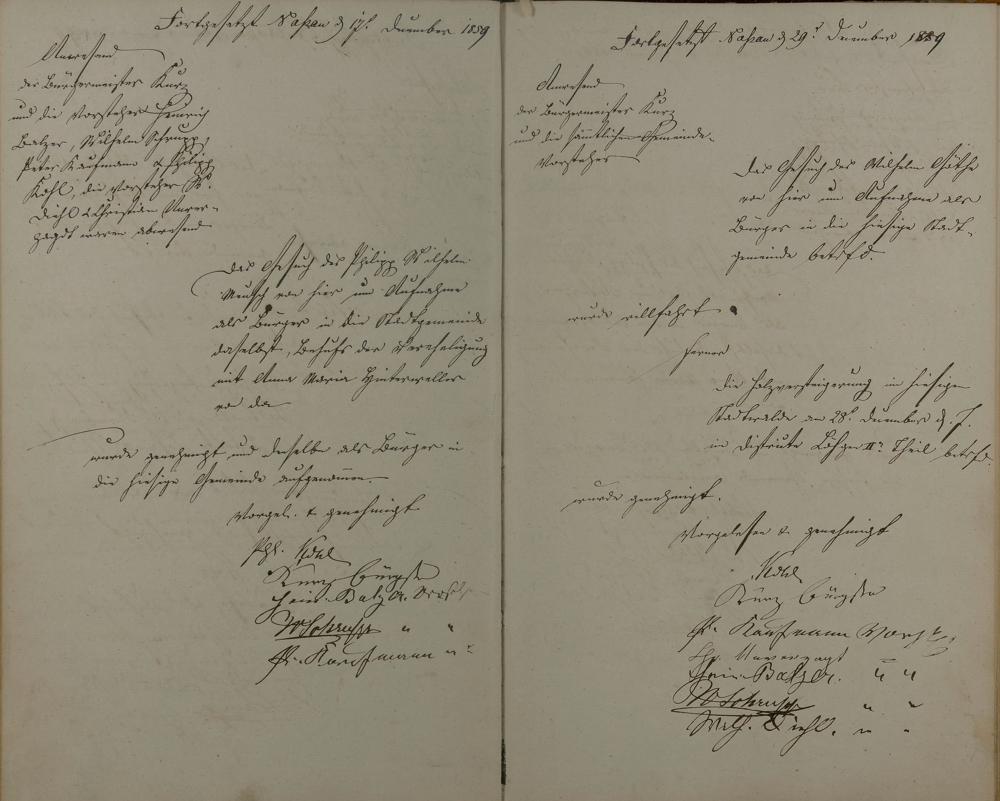 Fortgesetzt Naßau d 17t. Dezember 1859
Anwesend
der Bürgermeister Kurz
und die Vorsteher Heinrich
Balzer, Wilhelm Schrupp,
Peter Kaufmann & Philipp
Kohl, die Vorsteher W.
Diehl & Christian Unver-
zagdt waren abwesend
Das Gesuch des Philipp Wilhelm
Meusch von hier um Aufnahme
als Bürger in die Stadtgemeinde
daselbst, Behufs der Verehelichung
mit Anna Maria Hinterweller
von da
wurde genehmigt und derselbe als Bürger in
die hiesige Gemeinde aufgenommen.
Vorgel. & genehmigt
Phl. Kohl
Kurz Bürgstr
Hein. Balzer
W Schrupp " "
Pr. Kaufmann " "
Fortgesetzt Naßau d 29t. Dezember 1859
Anwesend
der Bürgermeister Kurz
und die sämtlichen Gemeinde-
Vorsteher
Das Gesuch des Wilhelm Göthe
von hier um Aufnahme als
Bürger in die hiesige Stadt-
gemeinde betrfd.
wurde willfahrt.
ferner
Die Holzversteigerung im hiesigen
Stadtwalde am 28t. Dezember d. J.
im Distrikte IIr. Theil betrfd.
wurde genehmigt.
Vorgelesen & genehmigt
Kohl
Kurz Bürgstr
Pr. Kaufmann Vorst.
Chr. Unverzagt
Hein. Balzer. " "
W Schrupp " "
Wilh. Diehl. " "